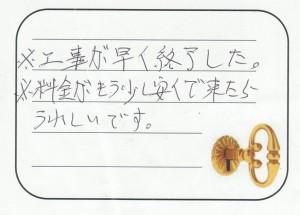 ※工事が早く終了した。
※料金がもう少し安くで来たら
うれしいです。